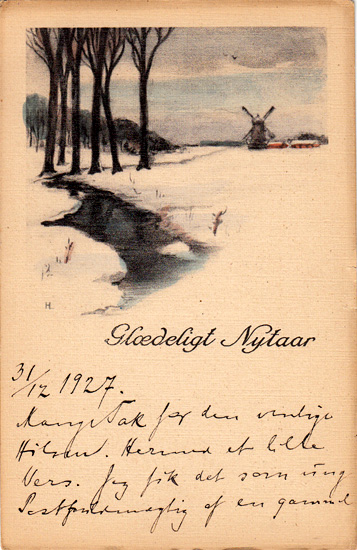 H.
Glædeligt Nytaar
31/12 1927.
Mange Tak for den venlige
Hilsen. Hermed et lille
Vers. Jeg fik det som ung
Postfuldmægtig af en gammel